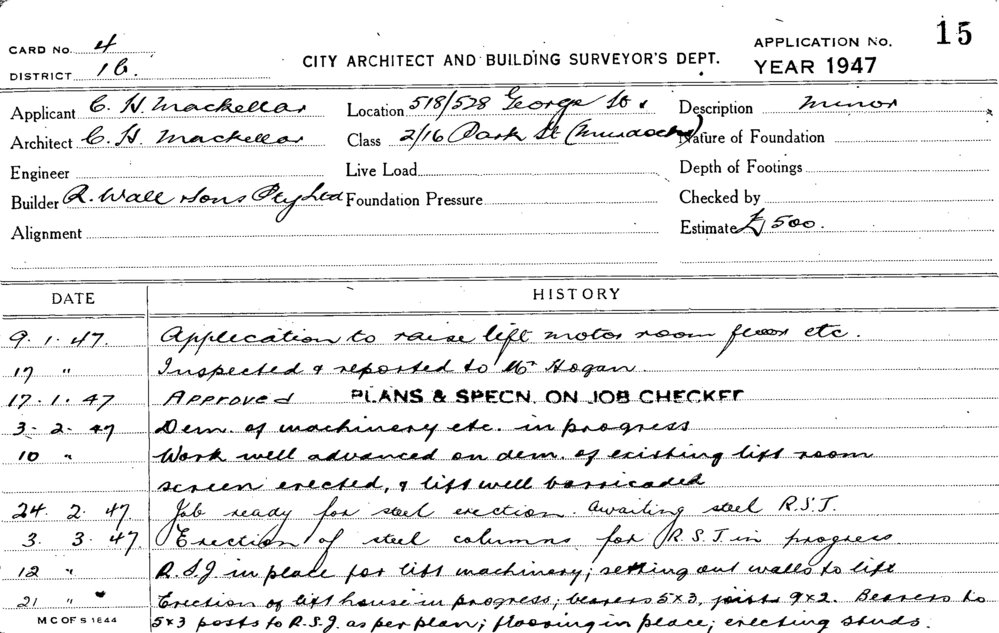 CARD No. 4
DISTRICT 1b.
CITY ARCHITECT AND BUILDING SURVEYOR'S DEPT.
APPLICATION No. 15
YEAR 1947
Applicant C. H. Mackellar Location 518/528 George St. Description Minor
Architect C. H. Mackellar Class 2/16 Park St (Murdochs) Nature of Foundation
Engineer Live Load Depth of Footings
Builder R. Wall & Sons Pty Ltd Foundation Pressure Checked by
Alignment Estimate £500.
DATE HISTORY
9.1.47. Application to raise lift motor room floor etc.
17 " Inspected & reported to Mr Hogan.
17.1.47 Approved PLANS & SPECN. ON JOB CHECKED
3-2-47 Dem. of machinery etc. in progress
10 " Work well advanced on dem. of existing lift room
screen erected, & lift well barricaded
24. 2. 47. Job ready for steel erection. Awaiting steel R.S.J.
3. 3. 47. Erection of steel columns for R.S.J in progress
12 " R.S.J. in place for lift machinery; setting out walls to lift
21 " " Erection of lift house in progress; bearers 5x3, joists 9x2. Bearers to
M C OF S 1844
5x3 posts to R.S.J. as per plan; flooring in place; erecting studs.